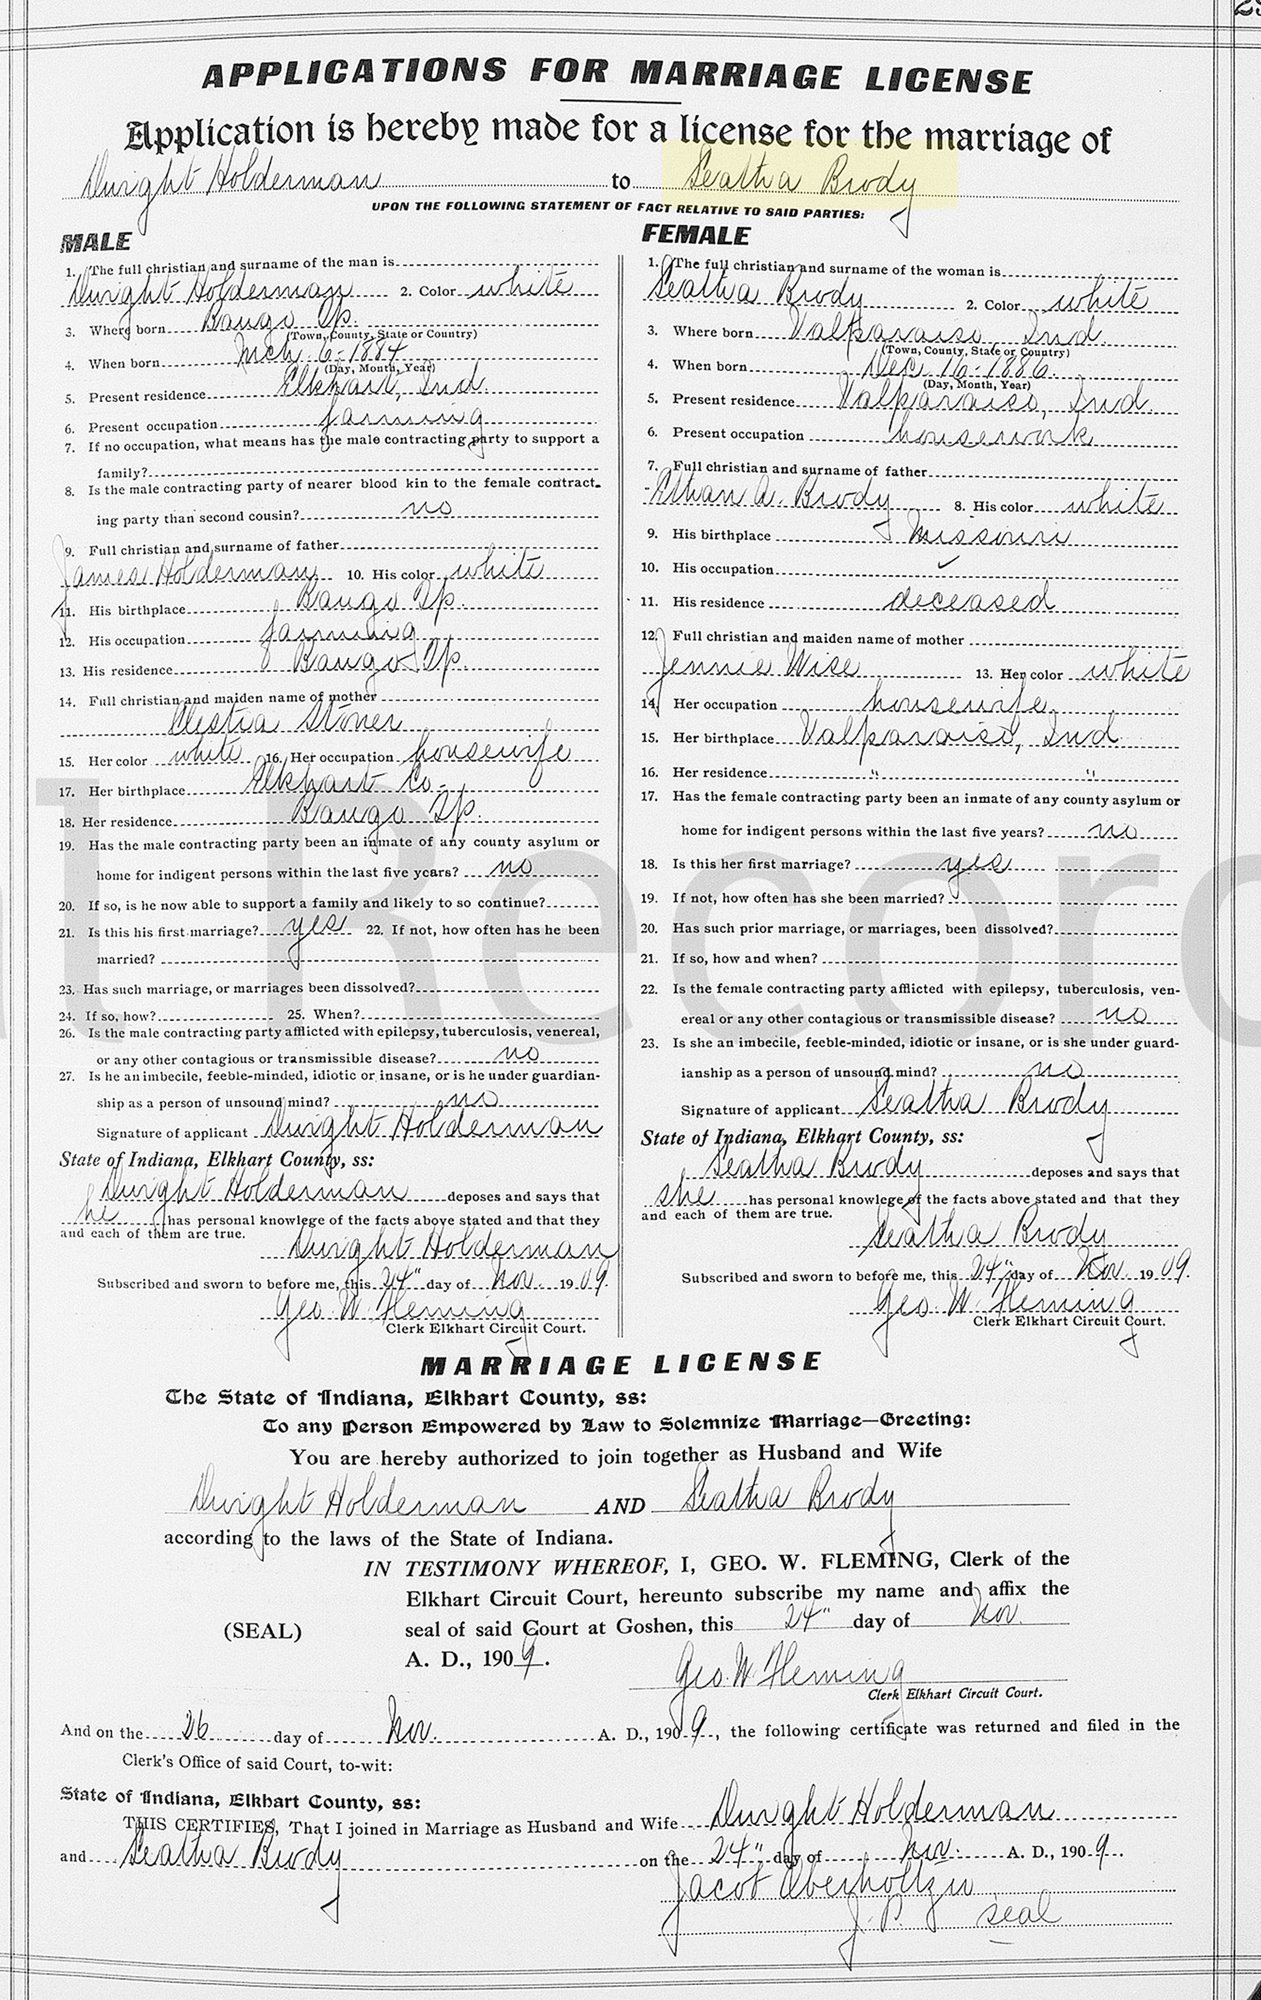 APPLICATIONS FOR MARRIAGE LICENSE
Application is hereby made for a license for the marriage of
Dwight Holderman to Seatha Brody
UPON THE FOLLOWING STATEMENT OF FACT RELATIVE TO SAID PARTIES:
MALE
1. The full christian and surname of the man is
Dwight Holderman 2. Color white
3. Where born Baugo Tp.
(Town, County, State or Country)
4. When born Mch. 6-1884
(Day, Month, Year)
5. Present residence Elkhart, Ind.
6. Present occupation farming
7. If no occupation, what means has the male contracting party to support a
family?
8. Is the male contracting party of nearer blood kin to the female contract-
ing party than second cousin? no
9. Full christian and surname of father
James Holderman 10. His color white
11. His birthplace Baugo Tp.
12. His occupation farming
13. His residence Baugo Tp.
14. Full christian and maiden name of mother
Elestia Stoner
15. Her color white 16. Her occupation housewife
17. Her birthplace Elkhart Co.
18. Her residence Baugo Tp.
19. Has the male contracting party been an inmate of any county asylum or
home for indigent persons within the last five years? no
20. If so, is he now able to support a family and likely to so continue?
21. Is this his first marriage? yes 22. If not, how often has he been
married?
23. Has such marriage, or marriages been dissolved?
24. If so, how? 25. When?
26. Is the male contracting party afflicted with epilepsy, tuberculosis, venereal,
or any other contagious or transmissible disease? no
27. Is he an imbecile, feeble-minded, idiotic or insane, or is he under guardian-
ship as a person of unsound mind? no
Signature of applicant Dwight Holderman
State of Indiana, Elkhart County, ss:
Dwight Holderman deposes and says that
he has personal knowlege of the facts above stated and that they
and each of them are true.
Dwight Holderman
Subscribed and sworn to before me, this 24" day of Nov. 1909.
Geo. W. Fleming
Clerk Elkhart Circuit Court.
FEMALE
1. The full christian and surname of the woman is
Seatha Brody 2. Color white
3. Where born Valparaiso Ind
(Town, County, State or Country)
4. When born Dec. 16-1886.
(Day, Month, Year)
5. Present residence Valparaiso, Ind.
6. Present occupation housework
7. Full christian and surname of father
Ethan A. Brody 8. His color white
9. His birthplace Missouri
10. His occupation ✓
11. His residence deceased
12. Full christian and maiden name of mother
Jennie Wise 13. Her color white
14. Her occupation housewife
15. Her birthplace Valparaiso, Ind
16. Her residence " "
17. Has the female contracting party been an inmate of any county asylum or
home for indigent persons within the last five years? no
18. Is this her first marriage? yes
19. If not, how often has she been married?
20. Has such prior marriage, or marriages, been dissolved?
21. If so, how and when?
22. Is the female contracting party afflicted with epilepsy, tuberculosis, ven-
ereal or any other contagious or transmissible disease? no
23. Is she an imbecile, feeble-minded, idiotic or insane, or is she under guard-
ianship as a person of unsound mind? no
Signature of applicant Seatha Brody
State of Indiana, Elkhart County, ss:
Seatha Brody deposes and says that
she has personal knowlege of the facts above stated and that they
and each of them are true.
Seatha Brody
Subscribed and sworn to before me, this 24" day of Nov. 1909.
Geo. W. Fleming
Clerk Elkhart Circuit Court.
MARRIAGE LICENSE
The State of Indiana, Elkhart County, ss:
To any Person Empowered by Law to Solemnize Marriage—Greeting:
You are hereby authorized to join together as Husband and Wife
Dwight Holderman AND Seatha Brody
according to the laws of the State of Indiana.
IN TESTIMONY WHEREOF, I, GEO. W. FLEMING, Clerk of the
Elkhart Circuit Court, hereunto subscribe my name and affix the
(SEAL) seal of said Court at Goshen, this 24" day of Nov.
A. D., 1909.
Geo. W. Fleming
Clerk Elkhart Circuit Court.
And on the 26 day of Nov. A. D., 1909, the following certificate was returned and filed in the
Clerk's Office of said Court, to-wit:
State of Indiana, Elkhart County, ss:
THIS CERTIFIES, That I joined in Marriage as Husband and Wife Dwight Holderman
and Seatha Brody on the 24" day of Nov. A. D., 1909.
Jacob Oberholtzer
J. P. seal